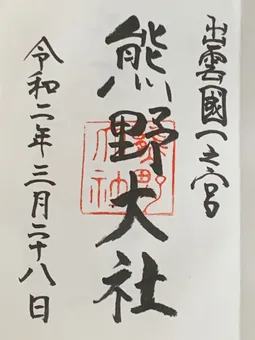 出雲國一之宮
熊野大社
令和二年三月二十八日
熊野大社